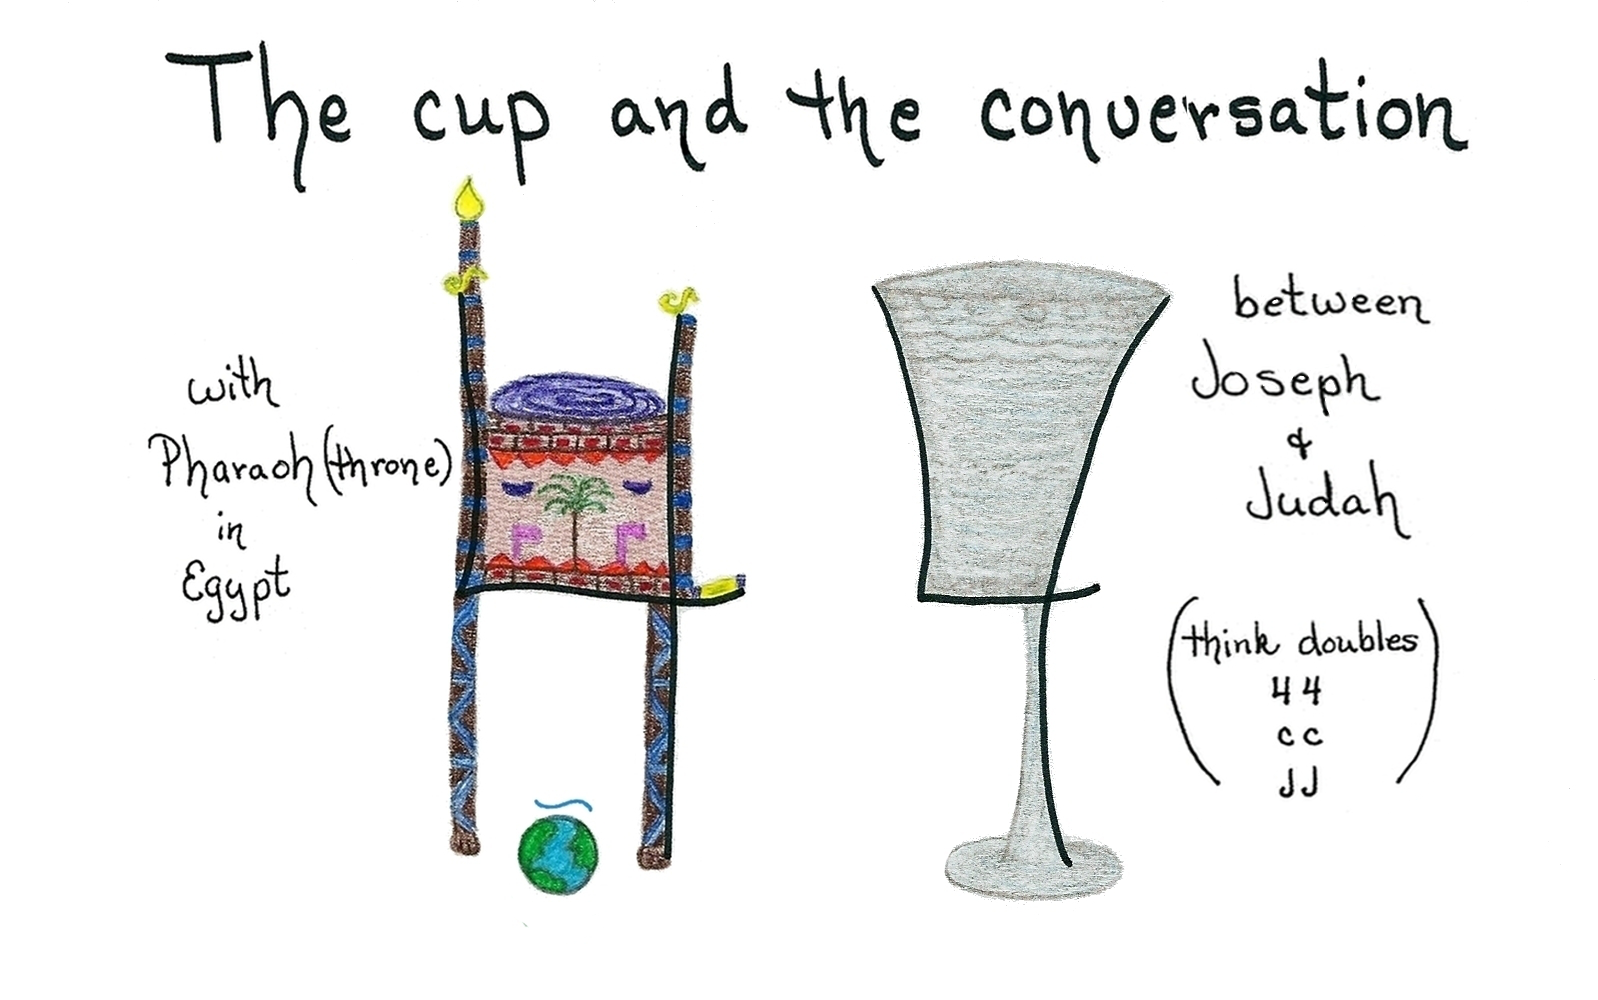 The cup and the conversation
with
Pharaoh (throne)
in
Egypt
between
Joseph
&
Judah
(think doubles
44
cc
JJ)